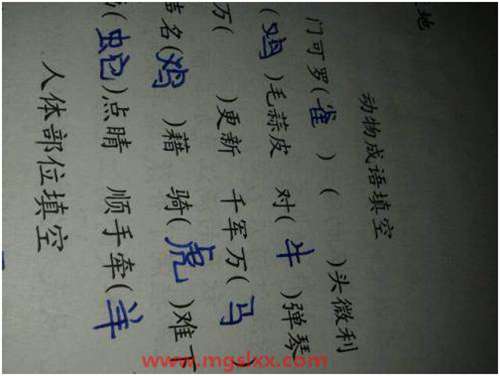 地
动物成语填空
门可罗(雀) ( )头微利
(鸡)毛蒜皮 对(牛)弹琴
万( )更新 千军万(马
名(鸡)藉 骑(虎)难下
(蛇)点睛 顺手牵(羊
人体部位填空
www.mgslxx.com